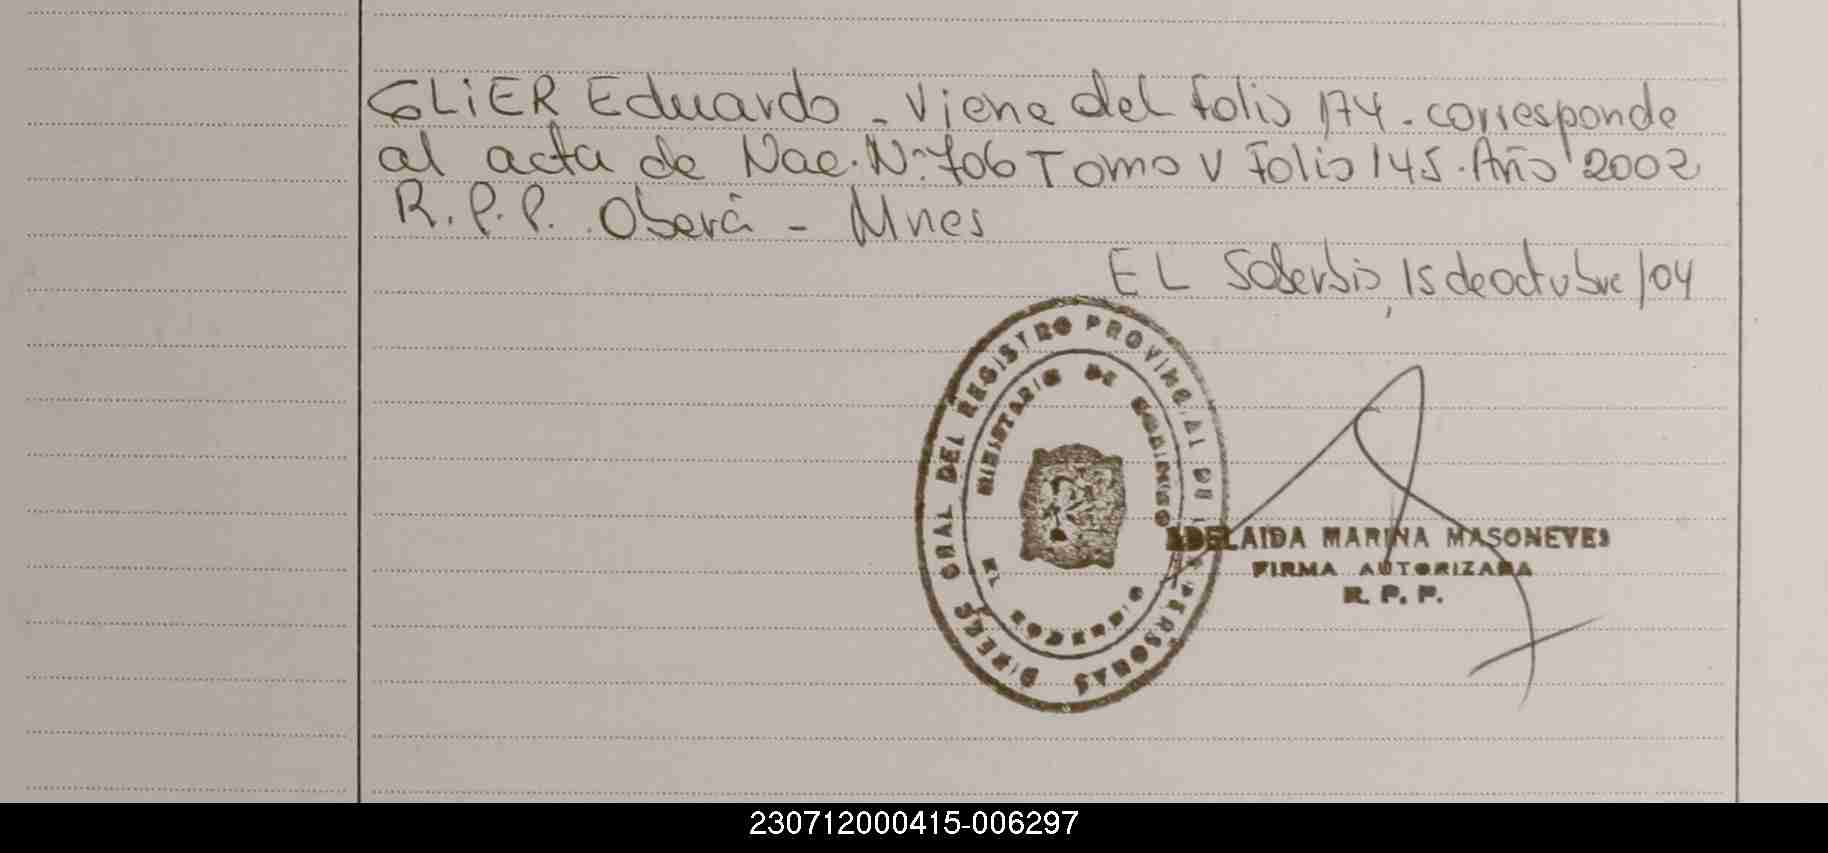 GLIER Eduardo - Viene del folio 174. corresponde
al acta de Nac. Nº: 706 Tomo V Folio 145. Año 2002
R.P.P. Oberá - Mnes
EL Soberbio, 15 de octubre/04
DIREC GRAL DEL REGISTRO PROVINCIAL DE PERSONAS
MINISTERIO DE GOBIERNO
EL SOBERBIO
ADELAIDA MARINA MASONEVES
FIRMA AUTORIZADA
R. P. P.
230712000415-006297